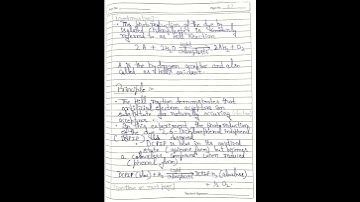 • The photoreduction of the dye by
isolated chloroplast is commonly
referred to as Hill reaction
2A + 2H₂O → 2AH₂ + O₂
A is the hydrogen acceptor and also
called as Hill oxidant
Principle :-
• The Hill reaction demonstrates that
artificial electron acceptors can
substitute for naturally occuring
acceptors
• In this experiment the photoreduction
of the dye 2,6-Dichlorophenol Indophenol
(DCPIP)
• DCPIP is blue in its oxidized
state (quinone form) but becomes
a colourless when reduced
(phenol form)
DCPIP (blue) + H₂ → DCPIP H₂ (colourless)
+ ½ O₂